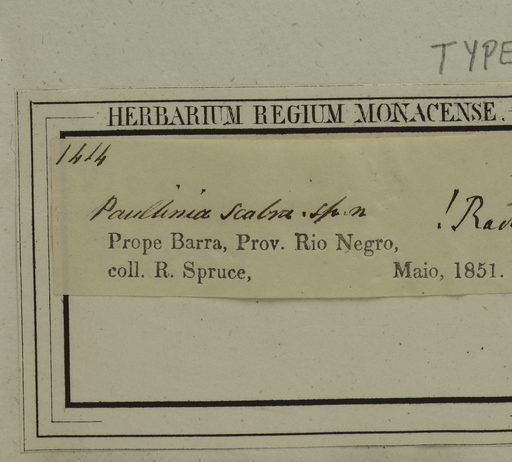 TYPE
HERBARIUM REGIUM MONACENSE.
1414
Paullinia scabra. sp. n ! Rad
Prope Barra, Prov. Rio Negro,
coll. R. Spruce, Maio, 1851.